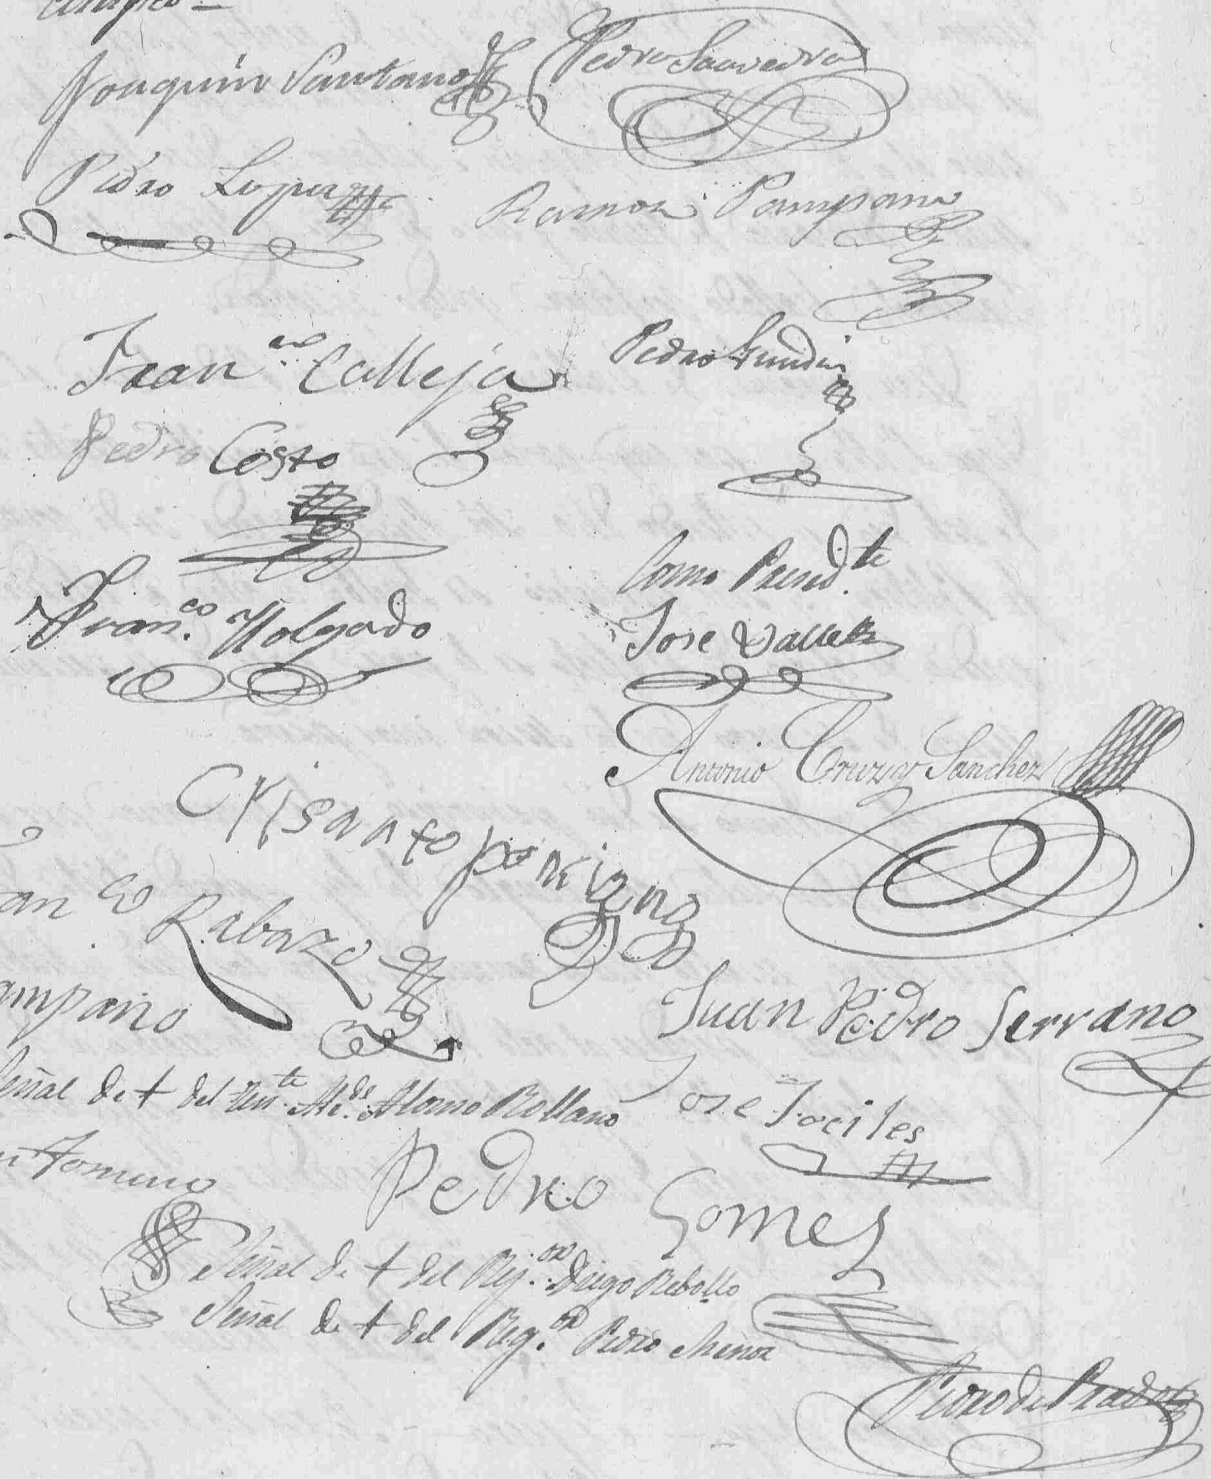 Joaquin Santano
Pedro Saavedra
Pedro Lopez
Ramon Pampano
Fran.co Calleja
Pedro Gundin
Pedro Costo
Como Presid.te
Fran.co Holgado
Jose Valle
Antonio Cruz y Sanchez
Crisanto
an co Rabazo
ampano
Juan Pedro Serrano
Señal de + del Ten.te Alonso Rollano
Jose Tociles
Pedro Gomes
Señal de + del Rej.or Diego Rebollo
Señal de + del Reg.or Pedro
Pedro de Prado